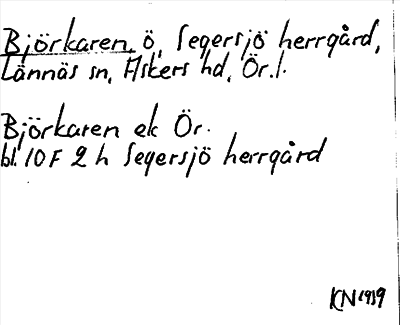 Björkaren, ö, Segersjö herrgård,
Lännäs sn, Askers hd, Ör.l.
Björkaren ek Ör.
bl. 10 F 2 h Segersjö herrgård
KN 1939